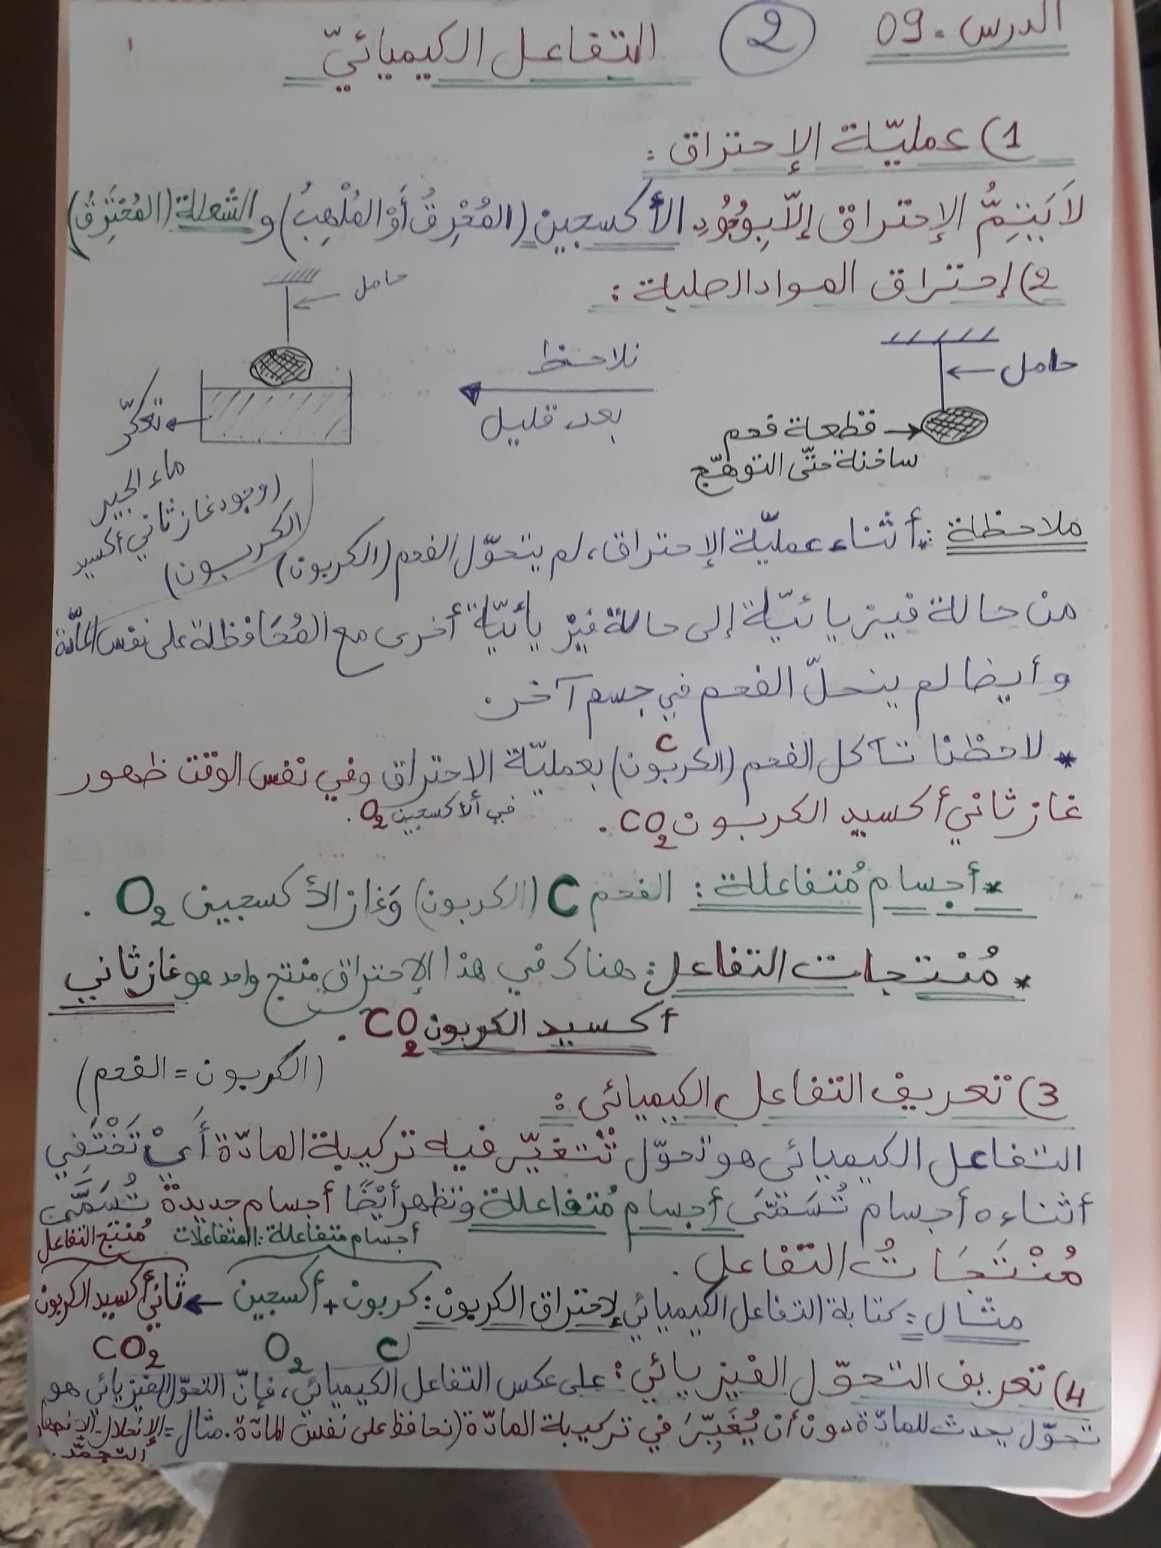 الدرس 09
2
التفاعل الكيميائيّ
1) عمليّة الإحتراق:
لَا يَتِمُّ الإحتراق إلاّ بِوُجُودِ الأكسجين (المُحْرِقُ أَوْ المُلْهِبُ) و الشعلة (المُحْتَرِقُ)
2) إحتراق المواد الصلبة:
حامل
قطعة فحم
ساخنة حتّى التوهّج
نلاحظ
بعد قليل
حامل
تعكّر
ماء الجير
(وجود غاز ثاني أكسيد
الكربون)
ملاحظة: * أثناء عمليّة الإحتراق، لم يتحوّل الفحم (الكربون)
من حالة فيزيائيّة إلى حالة فيزيائيّة أخرى مع المُحَافظة على نفس المادّة
وأيضا لم ينحلّ الفحم في جسم آخر.
* لاحظنا تآكل الفحم (الكربون) C بعمليّة الاحتراق وفي نفس الوقت ظهور
في الأكسجين O2.
غاز ثاني أكسيد الكربون CO2.
* أجسام مُتفاعلة: الفحم C (الكربون) وَغاز الأكسجين O2.
* مُنْتجات التفاعل: هناك في هذا الإحتراق منتج واحد هو غاز ثاني
أكسيد الكربون CO2.
(الكربون = الفحم)
3) تعريف التفاعل الكيميائي:
التفاعل الكيميائي هو تحوّل تْتغيّر فيه تركيبة المادّة أَيْ تَخْتَفي
أثناءه أجسام تُسَمَّى أجسام مُتفاعلة وتظهر أيْضًا أجسام جديدة تُسَمَّى
مُنْتَجَاتُ التفاعل.
أجسام متفاعلة: المتفاعلات
مُنتج التفاعل
مثال: كتابة التفاعل الكيميائي لإحتراق الكربون: كربون + أكسجين ← ثاني أكسيد الكربون
C O2 CO2
4) تعريف التحوّل الفيزيائي: على عكس التفاعل الكيميائي، فإنّ التحوّل الفيزيائي هو
تحوّل يحدث للمادّة دون أن يُغَيِّرَ في تركيبة المادّة (نحافظ على نفس المادّة. مثال = الإنحلال، الإنصهار
التجمّد.